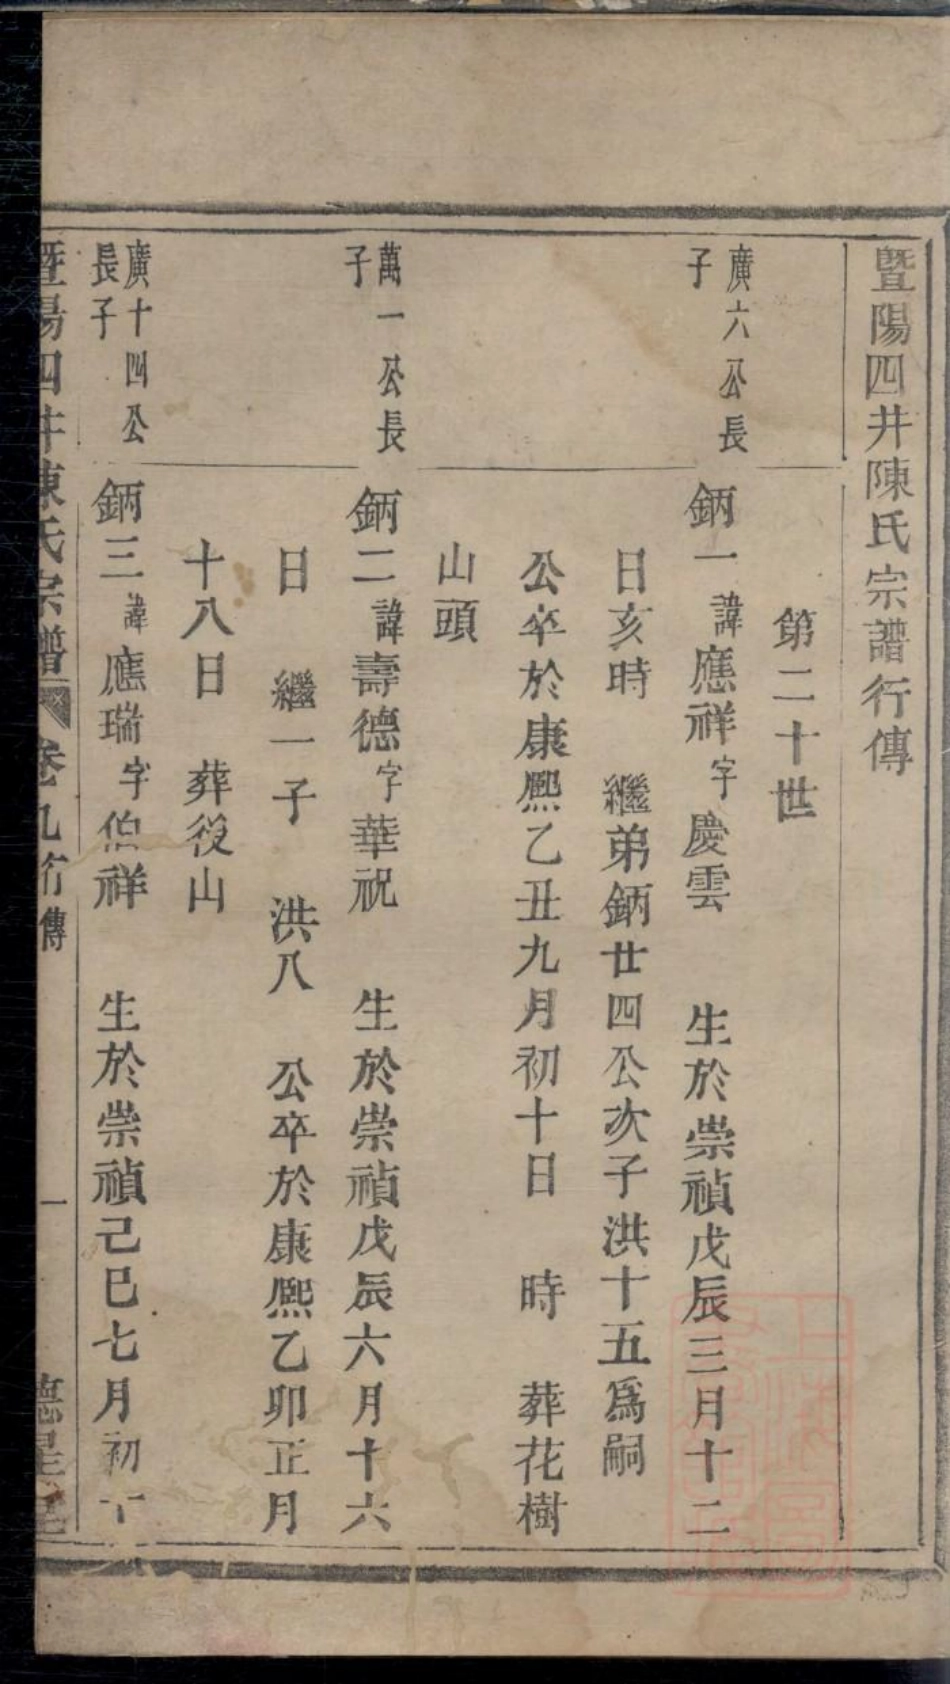 暨陽四井陳氏宗譜行傳
第二十世
廣六公長
子
鈵一諱應祥字慶雲 生於崇禎戊辰三月十二
日亥時 繼弟鈵廿四公次子洪十五爲嗣
公卒於康熙乙丑九月初十日 時 葬花樹
山頭
萬一公長
子
鈵二諱壽德字華祝 生於崇禎戊辰六月十六
日 繼一子 洪八 公卒於康熙乙卯正月
十八日 葬後山
廣十四公
長子
鈵三諱應瑞字伯祥 生於崇禎己巳七月初十
暨陽四井陳氏宗譜 卷九行傳 一 德星堂